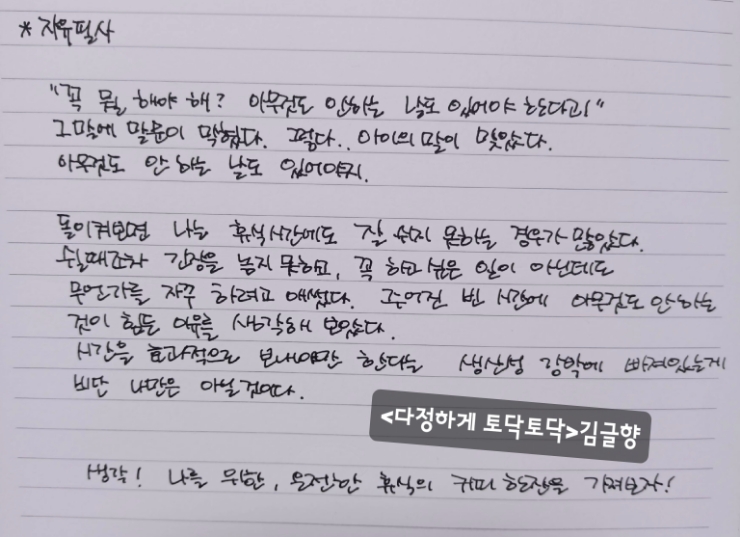 * 자유필사
"꼭 뭘 해야 해? 아무것도 안하는 날도 있어야 한다고!"
그말에 말문이 막혔다. 그렇다.. 아이의 말이 맞았다.
아무것도 안 하는 날도 있어야지.
돌이켜보면 나는 휴식시간에도 잘 쉬지 못하는 경우가 많았다.
쉴때조차 긴장을 놓지 못하고, 꼭 하고 싶은 일이 아닌데도
무언가를 자꾸 하려고 애썼다. 주어진 빈 시간에 아무것도 안하는
것이 힘든 이유를 생각해 보았다.
시간을 효과적으로 보내야만 한다는 생산성 강박에 빠져있는게
비단 나만은 아닐 것이다.
<다정하게 토닥토닥>김글향
생각! 나를 위한, 온전한 휴식의 커피 한잔을 가져보자!